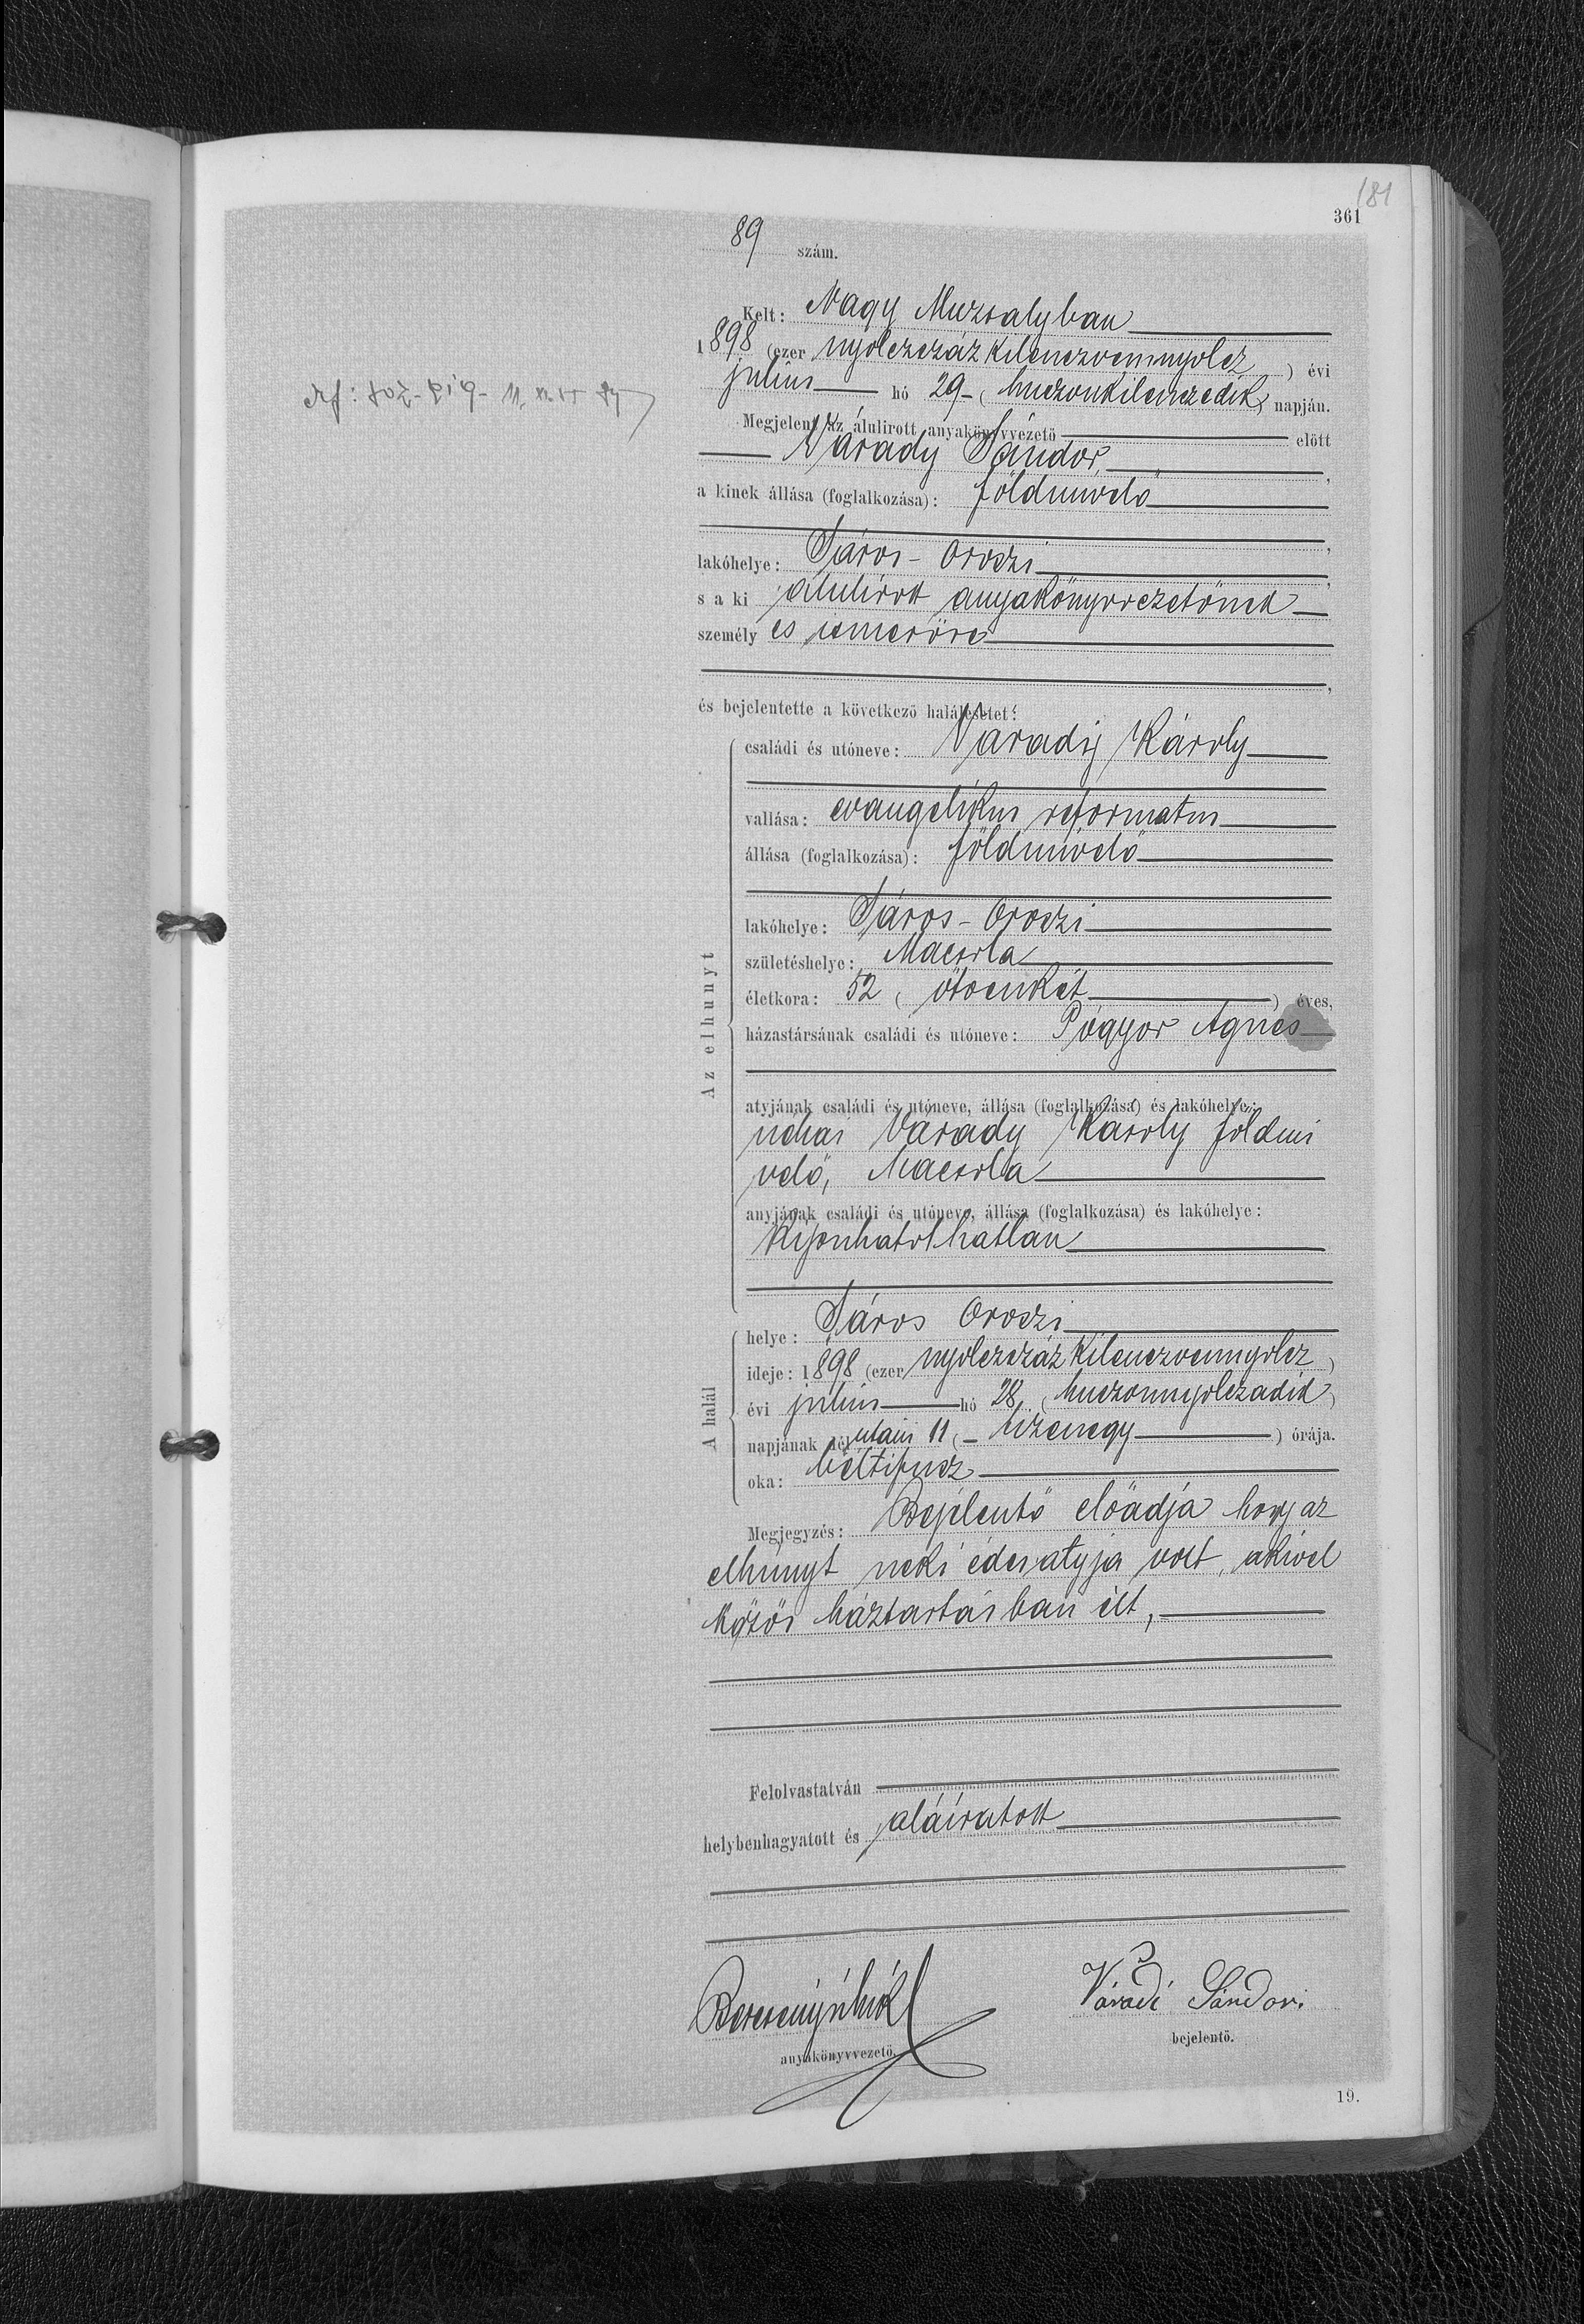 181
361
89 szám.
Kelt: Nagy Muzsalyban
1898 (ezer nyolczszáz kilenczvennyolcz) évi
julius hó 29- (huszonkilenczedik) napján.
Megjelent az alulirott anyakönyvvezető előtt
Várady Sándor,
a kinek állása (foglalkozása): földmívelő
lakóhelye: Sáros-Oroszi,
s a ki alulirott anyakönyvvezetőnek
személyes ismerőse
és bejelentette a következő halálesetet:
Az elhunyt
családi és utóneve: Várady Károly
vallása: evangelikus reformatus
állása (foglalkozása): földmívelő
lakóhelye: Sáros-Oroszi
születéshelye: Macsola
életkora: 52 (ötvenkét) éves,
házastársának családi és utóneve: Pógyor Ágnes
atyjának családi és utóneve, állása (foglalkozása) és lakóhelye:
néhai Várady Károly földmi
velő, Macsola
anyjának családi és utóneve, állása (foglalkozása) és lakóhelye:
Kipuhatolhatlan
A halál
helye: Sáros Oroszi
ideje: 1898 (ezer nyolczszáz kilenczvennyolcz)
évi julius hó 28, (huszonnyolczadik)
napjának délutáni 11 (- tizenegy) órája.
oka: béltifusz
Megjegyzés: Bejelentő előadja hogy az
elhunyt neki édesatyja volt, akivel
közös háztartásban élt,
Felolvastatván
helybenhagyatott és aláíratott
anyakönyvvezető.
Váradi Sándor.
bejelentő.
19.